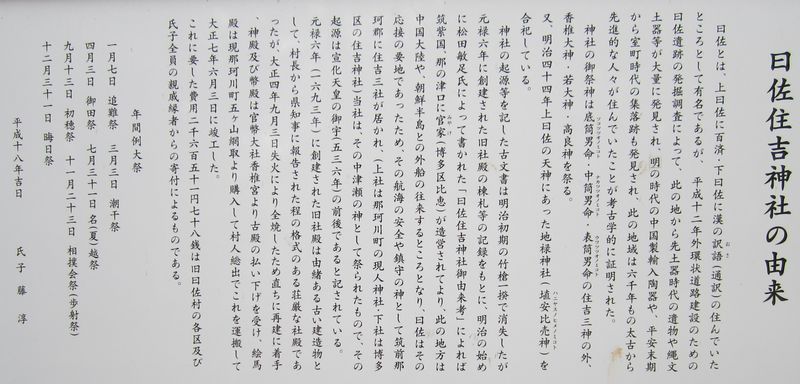 日佐住吉神社の由来
日佐とは、上日佐に百済・下日佐に漢の訳語(通訳)の住んでいた
ところとして有名であるが、平成十二年外環状道路建設のための
日佐遺跡の発掘調査によって、此の地から先土器時代の遺物や縄文
土器等が大量に発見され、明の時代の中国製輸入陶器や、平安末期
から室町時代の集落跡も発見され、此の地域は六千年もの太古から
先進的な人々が住んでいたことが考古学的に証明された。
神社の御祭神は底筒男命・中筒男命・表筒男命の住吉三神の外、
香椎大神・若大神・高良神を祭る。
又、明治四十四年上日佐の天神にあった地禄神社(埴安比売神)を
合祀している。
神社の起源等を記した古文書は明治初期の竹槍一揆で消失したが
元禄六年に創建された旧社殿の棟札等の記録をもとに、明治の始め
に松田敏足氏によって書かれた「日佐住吉神社御由来考」によれば
筑紫国、那の津口に官家(博多区比恵)が造営されてより、此の地方は
中国大陸や、朝鮮半島との外船の往来するところとなり、日佐はその
応接の要地であったため、その航海の安全や鎮守の神として筑前那
珂郡に住吉三社が居かれ、(上社は那珂川町の現人神社 下社は博多
区の住吉神社)当社は、その中津瀬の神として祭られたもので、その
起源は宣化天皇の御宇(五三六年)の前後であると記されている。
元禄六年(一六九三年)に創建された旧社殿は由緒ある古い建造物と
して、村長から県知事に報告された程の格式のある荘厳な社殿であ
ったが、大正四年九月三日失火により全焼したため直ちに再建に着手
、神殿及び幣殿は官幣大社香椎宮より古殿の払い下げを受け、絵馬
殿は現那珂川町五ヶ山網取より購入して村人総出でこれを運搬して
大正七年六月三日に竣工した。
これに要した費用二千六百五十一円七十八銭は旧日佐村の各区及び
氏子全員の親戚縁者からの寄付によるものである。
年間例大祭
一月七日 追難祭 三月三日 潮干祭
四月三日 御田祭 七月三十一日 名(夏)越祭
九月十三日 初穂祭 十一月二十三日 相撲会祭(歩射祭)
十二月三十一日 晦日祭
平成十八年吉日 氏子 藤 淳